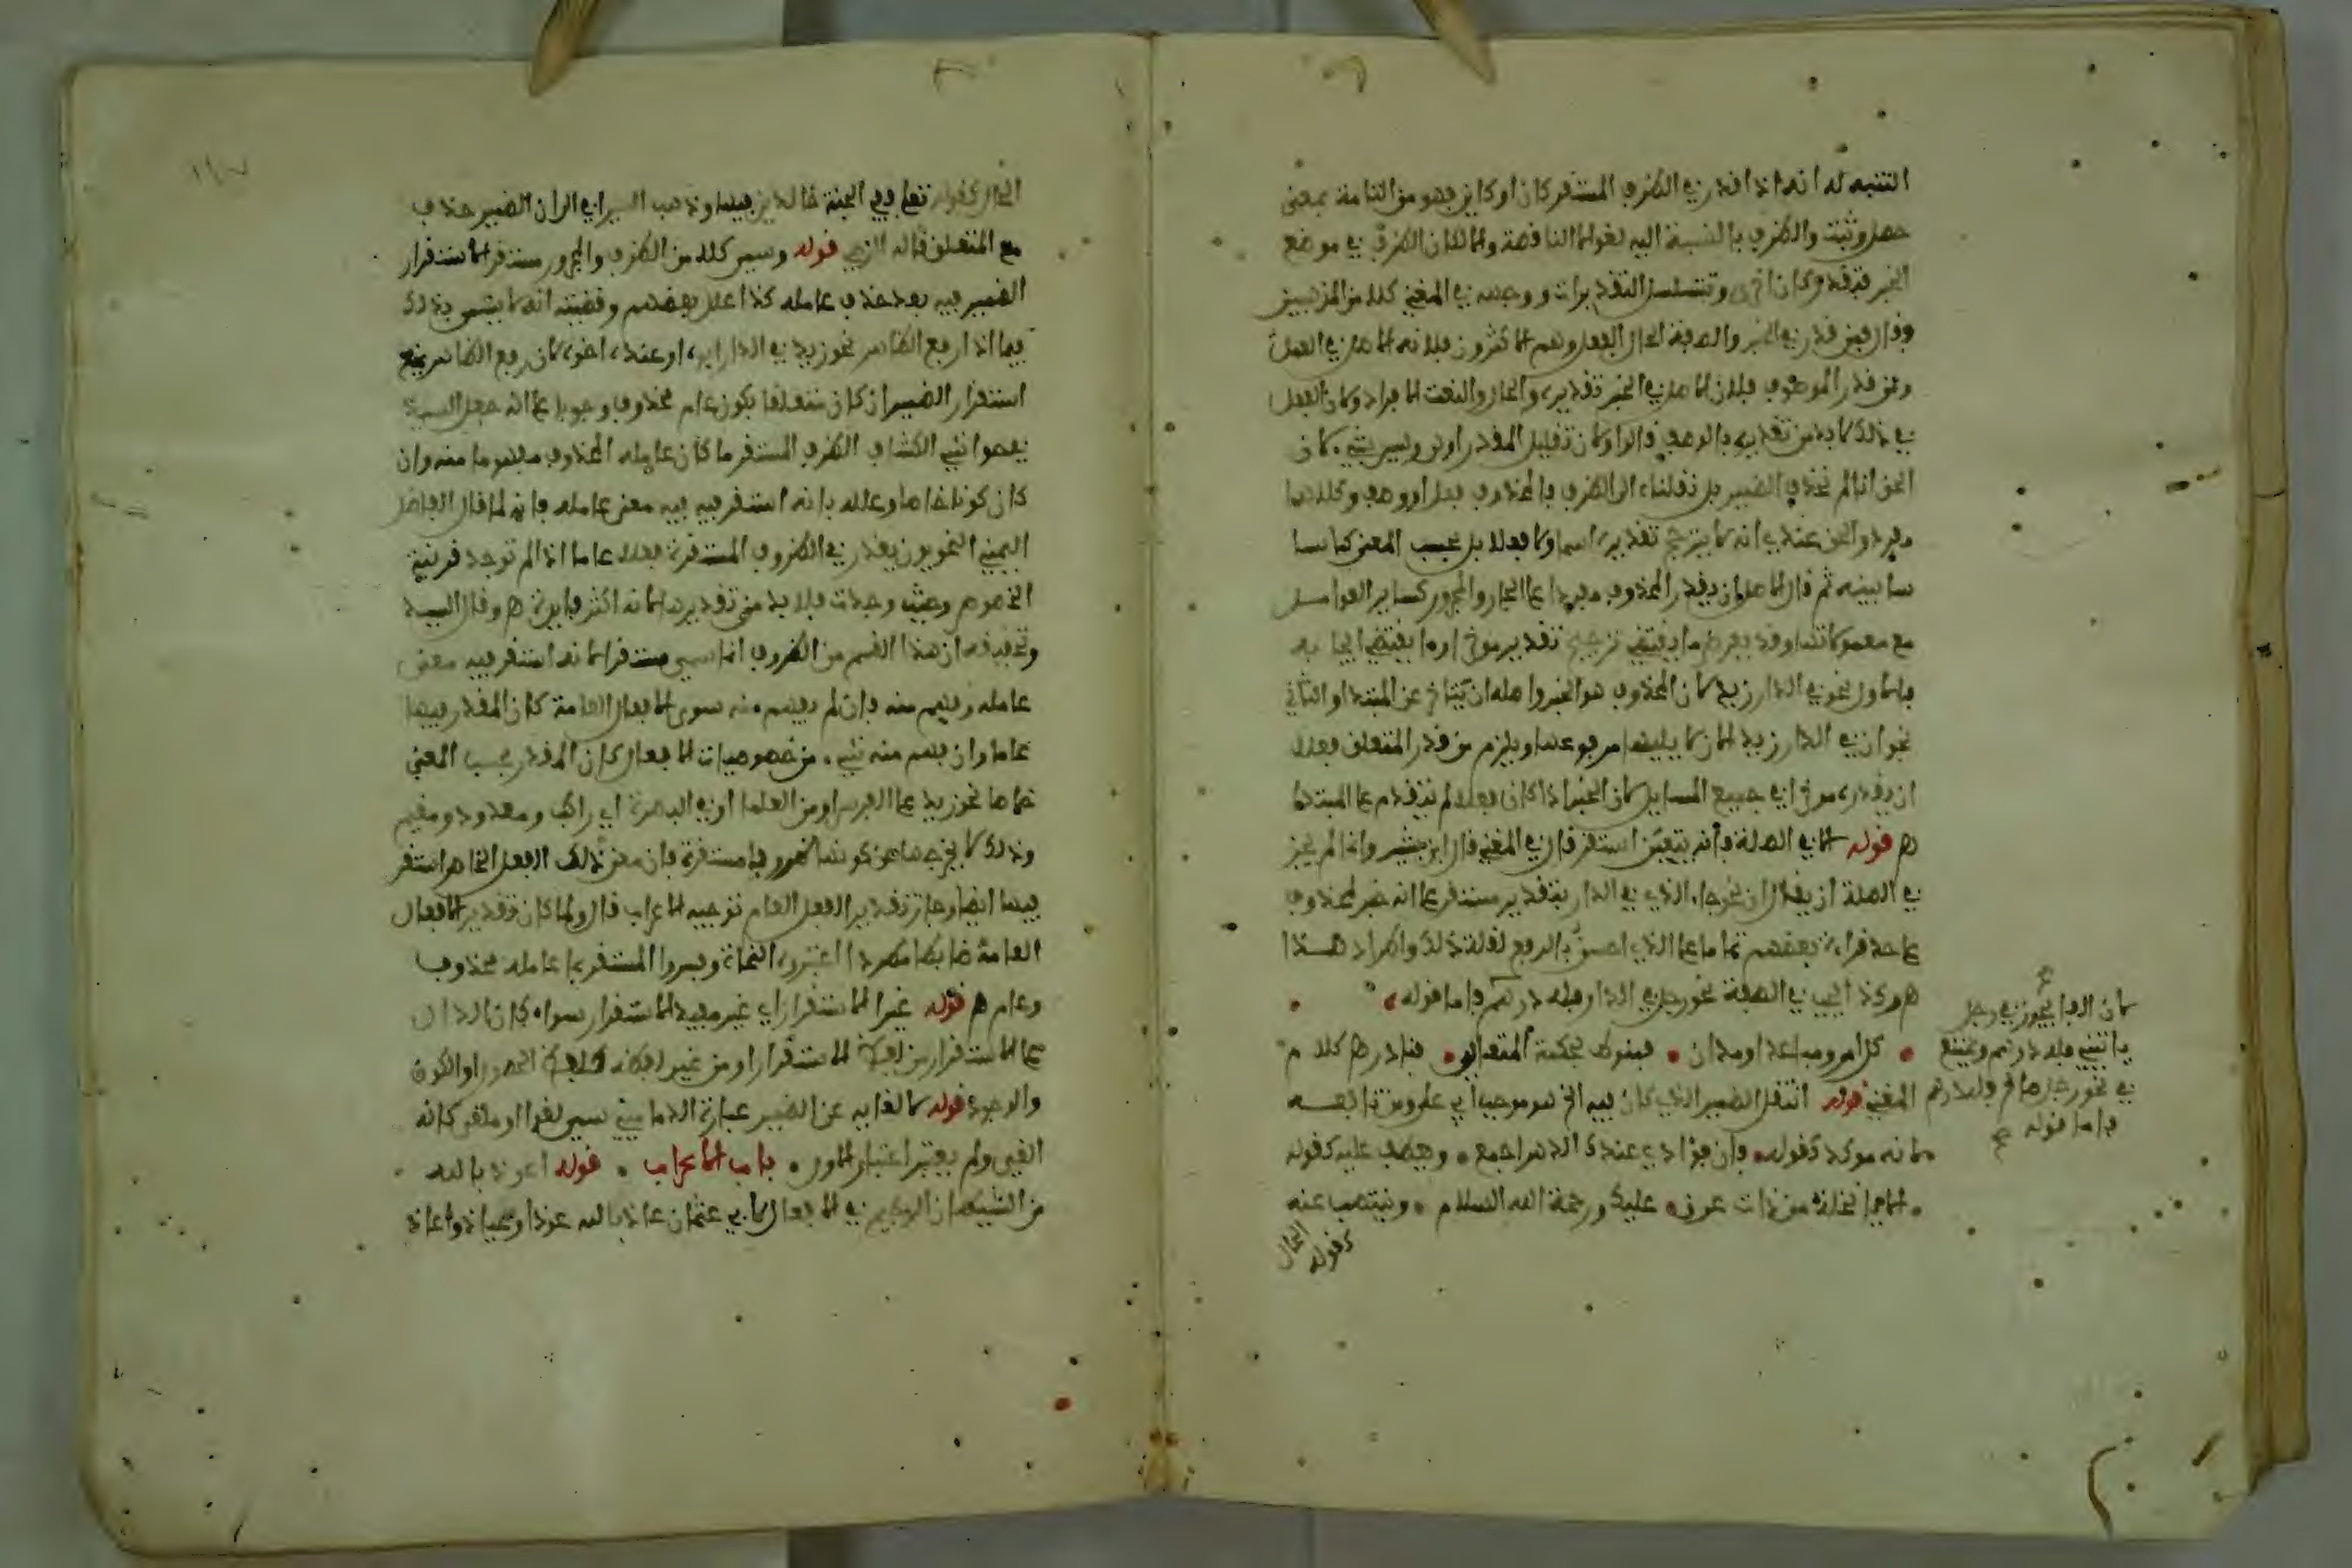 التنبه له انه اذا قدر في الظرف المستقر كان او كاين فهو من التامة بمعنى
حصل وثبت والظرف بالنسبة اليه لغو لا الناقصة والا لكان الظرف في موضع
الخبر فتقدر كان اخرى وتتسلسل التقديرات ووجهه في المغني كلا من المذهبين
وقال فمن قدر في الخبر والصفة الحال الفعل وهم الاكثرون فلانه الاصل في العمل
ومن قدر الموصوف فلان الاصل في الخبر تقديره والحال والنعت الافراد ولان الفعل
في ذلك لا بد من تقديره بالوصف قالوا ولان تقليل المقدر اولى وليس بشيء لان
الحق انا لم نحذف الضمير بل نقلناه الى الظرف فالمحذوف فعل او وصف وكلاهما
مفرد والحق عندي انه لا يترجح تقديره اسما ولا فعلا بل بحسب المعنى كما سا
سابينه ثم قال الاصل ان يقدر المحذوف مقدما على الجار والمجرور كساير العوامل
مع معمولاتها وقد يعرض ما يقتضي ترجيح تقديره موخرا وما يقتضي ايجابه
فالاول نحو في الدار زيد لان المحذوف هو الخبر واصله ان يتاخر عن المبتدا والثاني
نحو ان في الدار زيدا لان ان لا يليها مرفوعها ويلزم من قدر المتعلق فعلا
ان يقدره موخرا في جميع المسايل لان الخبر اذا كان فعلا لم يتقدم على المبتدا
هـ قوله الا في الصلة فانه يتعين استقر قال في المغني قال ابن يعيش وانما لم يجز
في الصلة ان يقال ان نحو جاء الذي في الدار بتقدير مستقر على انه خبر لمحذوف
على حد قراءة بعضهم تماما على الذي احسن بالرفع لقلة ذلك واطراد هذا
هـ وكذا يجب في الصفة نحو رجل في الدار فله درهم فاما قوله
كل امر مباعد او مدان • فمنوط بحكمة المتعالي • فنادر هـ كلام
المغني قوله انتقل الضمير الذي كان فيه الخ هو موجب ابي علي ومن تابعه
لانه موكد كقوله • فان فؤادي عندك الدهر اجمع • وعطف عليه كقوله
• الا يا نخلة من ذات عرق • عليك ورحمة الله السلام • وينتصب عنه
الحال كقوله
لان الفا تجوز في رجل
ياتيني فله درهم وتمتنع
في نحو رجل صالح فله درهم
فاما قوله صح
الحال كقوله تعلى ففي الجنة خالدين فيها وذهب السيرافي الى ان الضمير حذف
مع المتعلق قاله الرضي قوله وسمي كلا من الظرف والمجرور مستقرا لاستقرار
الضمير فيه بعد حذف عامله كذا علل بعضهم وقضيته انه لا يسمى بذلك
فيما اذا رفع الظاهر نحو زيد في الدار ابوه او عنده اخوه لان رفع الظاهر يمنع
استقرار الضمير ان كان متعلقا بكون عام محذوف وجوبا على انه جعل السيد
في حواشي الكشاف الظرف المستقر ما كان عامله المحذوف مفهوما منه وان
كان كونا خاصا وعلله بانه استقر فيه معنى عامله فانه لما قال الفاضل
اليمني النحويون يقدر في الظروف المستقرة فعلا عاما اذا لم توجد قرينة
الخصوص وحيث وجدت فلا بد من تقديره لانه اكثر فايدة هـ وقال السيد
وتحقيقه ان هذا القسم من الظروف انما سمي مستقرا لانه استقر فيه معنى
عامله وفهم منه فان لم يفهم منه سوى الافعال العامة كان المقدر فيها
عاما وان فهم منه شيء من خصوصيات الافعال كان المقدر بحسب المعنى
خاصا نحو زيد على الفرس او من العلما او في البصرة اي راكب ومعدود ومقيم
وذلك لا يخرجها عن كونها ظروفا مستقرة فان معنى ذلك الفعل الخاص استقر
فيها ايضا وجاز تقدير الفعل العام توجيه الاعراب قال ولما كان تقدير الافعال
العامة ضابطا مطردا اعتبره النحاة وفسروا المستقر بما عامله محذوف
وعام هـ قوله غير الاستقرار اي غير مفيد الاستقرار سواء كان الدال
على الاستقرار من لفظ الاستقرار او من غير لفظه كلفظ الحصول او الكون
والوجود قوله لالغايه عن الضمير عبارة الدماميني سمي لغوا او ملغى كانه
الغي ولم يعتبر اعتبار الاول • باب الاعراب • قوله اعوذ بالله
من الشيطان الرجيم في الافعال لابي عثمان عاذ بالله عوذا وعياذا واعاذ